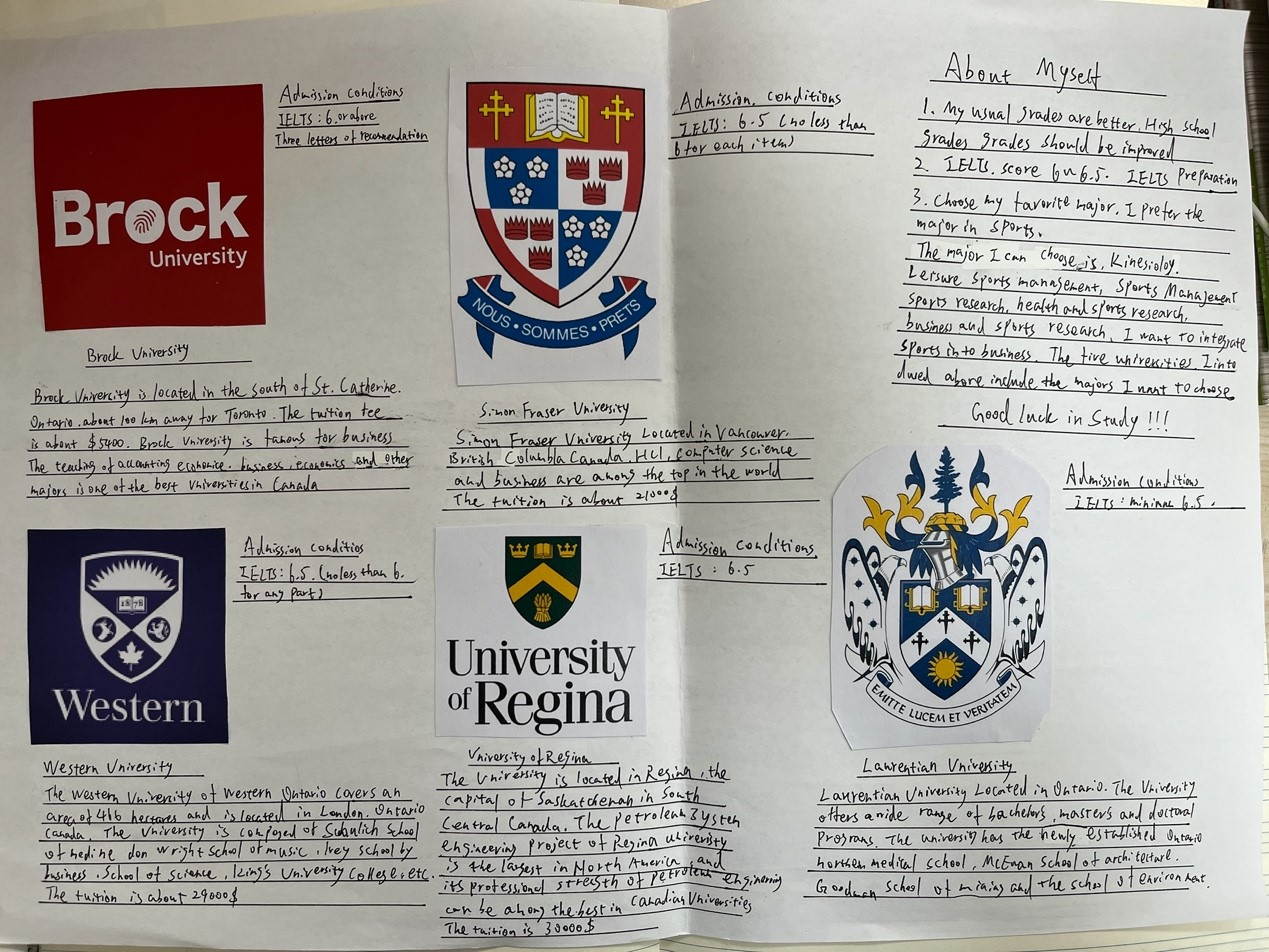 Brock
University
Admission conditions
IELTS: 6. or above
Three letters of recomendation
Brock University
Brock Univercity is located in the south of St. Catherine.
Ontario. about 100 km away for Toronto. The tuition fee
is about $5400. Brock University is famous for business
The teaching of accounting economice. business, economics and other
majors is one of the best Universities in Canada
NOUS • SOMMES • PRETS
Admission conditions
IELTS: 6.5 (no less than
6 for each item)
Simon Fraser University
Simon Fraser University Located in Vancouver.
British Columbia Canada, HCI, computer science
and business are among the top in the world
The tuition is about 21000$
About Myself
1. My usual grades are better. High school
grades grades should be improved
2. IELTS. score 6~6.5. IELTS Preparation
3. Choose my favorite major. I prefer the
major in sports.
The major I can choose is, Kinesioloy.
Leisure sports management, Sports Management
sports research, health and sports research,
business and sports research, I want to integrate
sports into business. The five universities I into
duced above include the majors I want to choose
Good Luck in Study !!!
1878
Western
Admission conditios
IELTS: 6.5. (no less than 6.
for any part)
Western University
The western University of western Ontario covers an
area of 416 hectares and is located in London. Ontario
Canada. The University is composed of Schulich School
of medine don wright school of music, Ivey school by
business, School of science, King's University College, etc.
The tuition is about 29000$
University
of Regina
Admission conditions
IELTS: 6.5
University of Regina
The University is located in Regina, the
capital of Saskatchenan in South
Central Canada. The petroleum System
engineering project of Regina university
is the largest in North America, and
its professional strength of petroleum engineering
can be among the best in Canadian Universities
The tuition is 30000$
EMITTE LUCEM ET VERITATEM
Admission conditions
IELTS: minimum 6.5.
Laurentian University
Laurentian University Located in Ontario. The University
offers a wide range of bachelors, masters and doctoral
Programs. The university has the newly established Ontario
northern medical school, McEwan School of architecture.
Goodman school of mining and the school of environment.